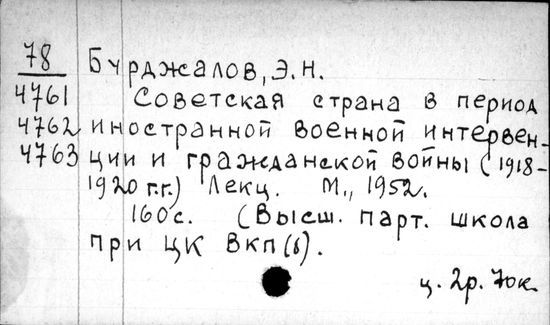 78 Бурджалов, Э.Н.
4761 Советская страна в период
4762 иностранной военной интервен-
4763 ции и гражданской войны (1918-
1920 г.г.) Лекц. М., 1952.
160с. (Высш. парт. школа
при ЦК ВКП(б).
ц. 2р. 70к.